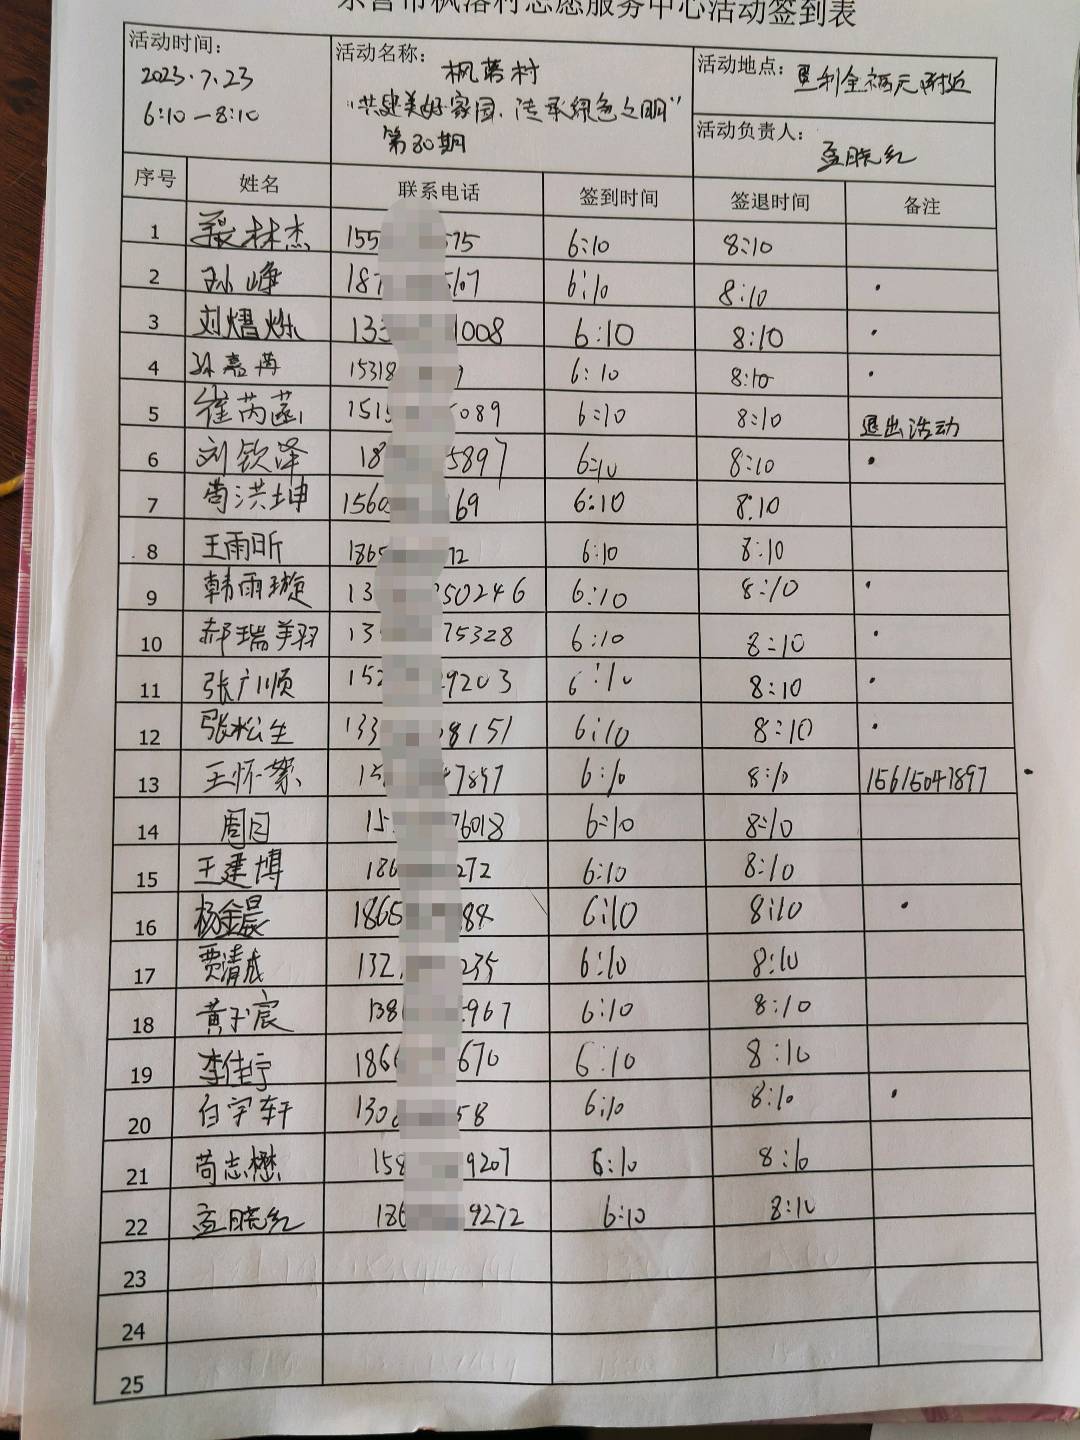 东营市枫落村志愿服务中心活动签到表
活动时间:
2023.7.23
6:10—8:10
活动名称:
枫落村
“共建美好家园、传承绿色文明”
第30期
活动地点: 附近
活动负责人:
孟晓红
序号 姓名 联系电话 签到时间 签退时间 备注
1 林杰 155 575 6:10 8:10
2 孙峥 187 6:10 8:10 ·
3 刘熠烁 133 1008 6:10 8:10 ·
4 孙嘉苒 15318 9 6:10 8:10 ·
5 崔芮菡 1515 5089 6:10 8:10 退出活动
6 刘钦泽 18 5897 6:10 8:10 ·
7 尚洪坤 1560 169 6:10 8:10
8 王雨昕 1865 72 6:10 8:10
9 韩雨璇 13 50246 6:10 8:10 ·
10 郝瑞翔 13 75328 6:10 8:10 ·
11 张广顺 152 29203 6:10 8:10 ·
12 张松生 133 8151 6:10 8:10 ·
13 王怀絮 15 47897 6:10 8:10 15615047897 ·
14 周目 15 76018 6:10 8:10
15 王建博 186 272 6:10 8:10
16 杨金晨 1865 884 6:10 8:10 ·
17 贾清 132 235 6:10 8:10
18 黄子宸 138 967 6:10 8:10
19 李佳宁 1866 670 6:10 8:10
20 白宇轩 130 58 6:10 8:10 ·
21 苘志懋 158 9207 6:10 8:10
22 孟晓红 186 9272 6:10 8:10
23
24
25